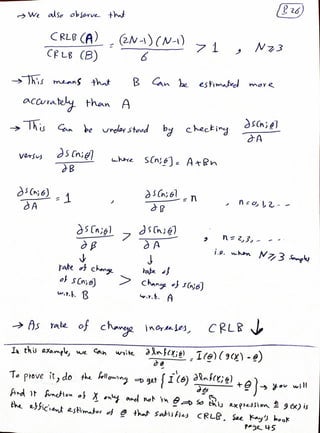 P.26
→ We also observe that
CRLB (A) / CRLB (B) = (2N-1)(N-1) / 6 > 1 , N≥3
→ This means that B can be estimated more
accurately than A
→ This can be understood by checking ∂s[n;θ] / ∂A
versus ∂s[n;θ] / ∂B where s[n;θ] = A+Bn
∂s[n;θ] / ∂A = 1 , ∂s[n;θ] / ∂B = n , n=0,1,2...
∂s[n;θ] / ∂B > ∂s[n;θ] / ∂A , n=2,3,...
i.e. when N≥3 samples
↓ ↓
rate of change > rate of
of s[n;θ] change of s[n;θ]
w.r.t. B w.r.t. A
→ As rate of change increases, CRLB ↓
In this example, we can write ∂lnf(X;θ) / ∂θ = I(θ) (g(X) - θ)
To prove it, do the following → get { I⁻¹(θ) ∂lnf(X;θ) / ∂θ + θ } → you will
find it function of X only and not in θ → so this expression is g(X) is
the efficient estimator of θ that satisfies CRLB. See Kay's book
page 45